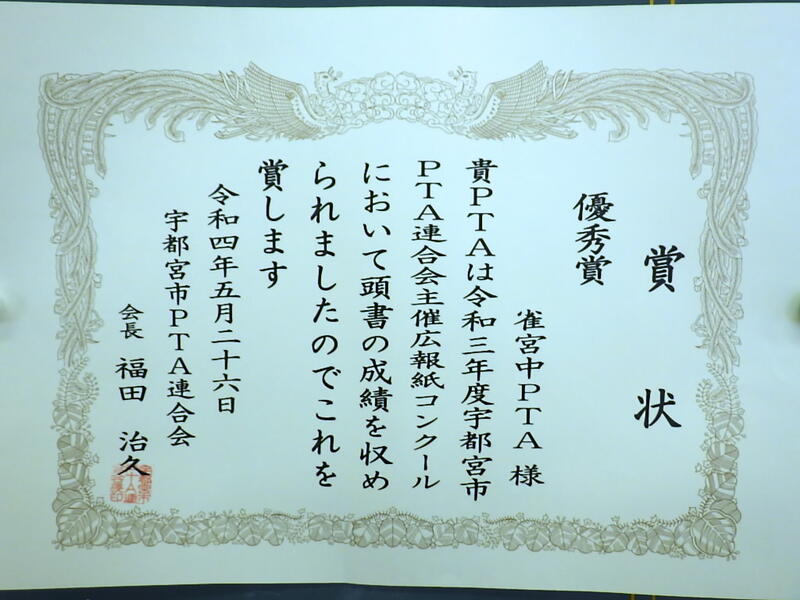 賞状
優秀賞
雀宮中PTA 様
貴PTAは令和三年度宇都宮市
PTA連合会主催広報紙コンクール
において頭書の成績を収め
られましたのでこれを
賞します
令和四年五月二十六日
宇都宮市PTA連合会
会長 福田 治久